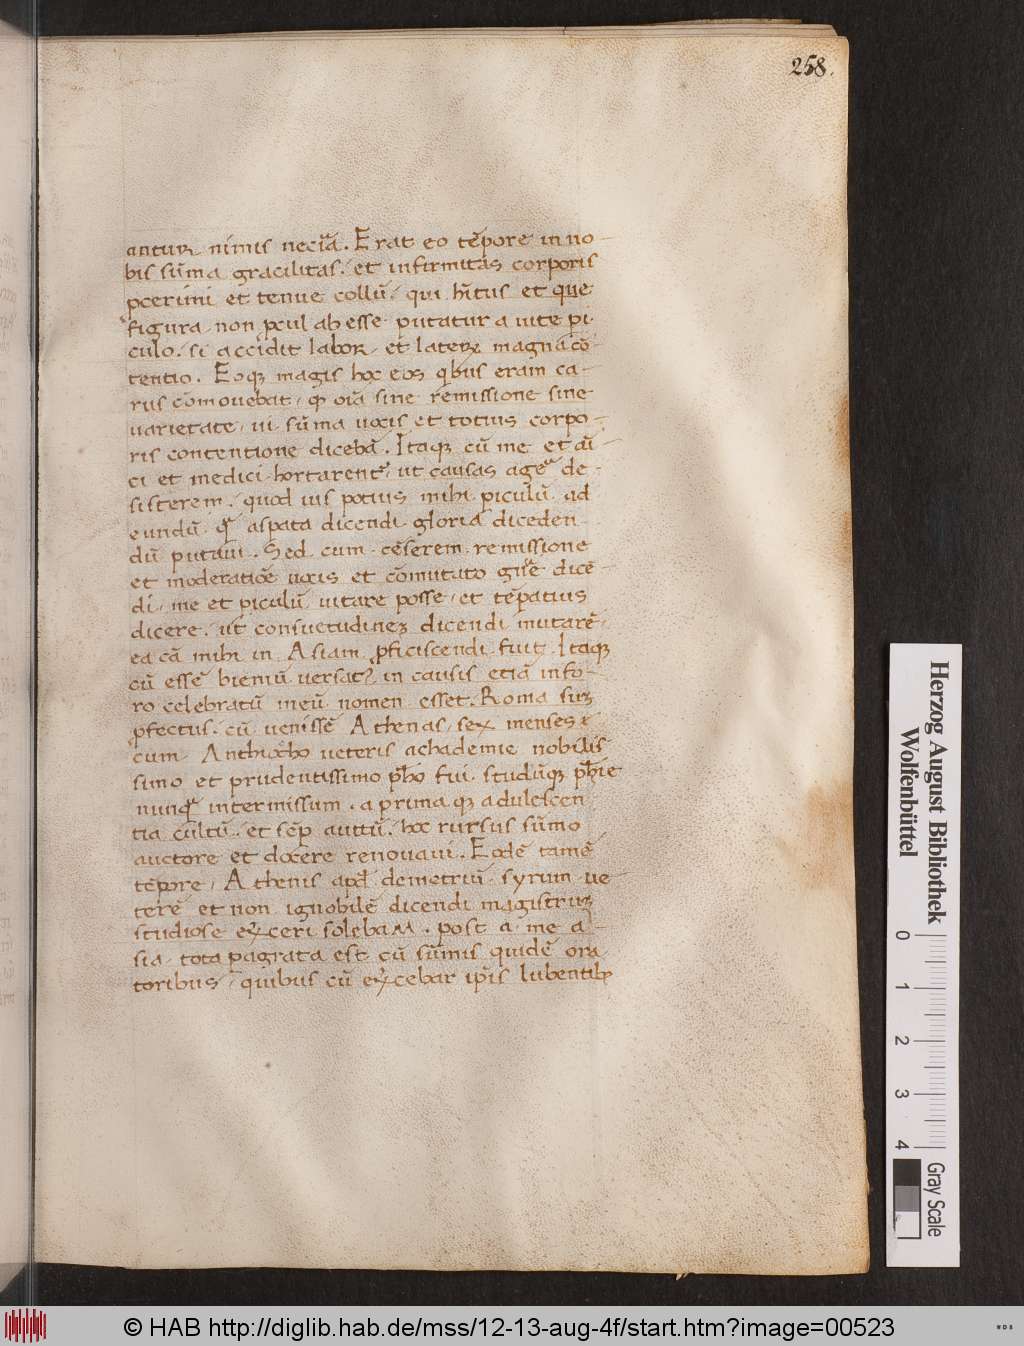 258.
antur nimis necia̅. Erat eo te̅pore in no-
bis su̅ma gracilitas, et infirmitas corporis
pcerini et tenue collu̅, qui h̅itus et que
figura, non pcul ab esse putatur a uite pi
culo, si accidit labor, et laterꝝ magna co̅-
tentio. Eoqꝫ magis hoc eos qbus eram ca-
rus co̅mouebat, ꝙ oi̅a sine remissione sine
uarietate, ui su̅ma uocis et totius corpo-
ris contentione diceba̅. Itaqꝫ cu̅ me et a̅i-
ci et medici hortarent᷒, ut causas age̅ de-
sisterem, quod uis potius mihi piculu̅ ad
eundu̅ qꝫ aspata dicendi gloria diceden
du̅ putaui. Sed cum ce̅serem remissione
et moderatio̅e uocis et co̅mutato gn̅e dice̅-
di, me et piculu̅ uitare posse, et te̅patius
dicere, ut consuetudineꝫ dicendi mutare̅,
ea ca̅ mihi in Asiam pficiscendi fuit. Itaqꝫ
cu̅ esse̅ bieniu̅ uersat᷒ in causis etia̅ in fo-
ro celebratu̅ meu̅ nomen esset. Roma suꝫ
pfectus, cu̅ uenisse̅ Athenas, sex menses
cum Anthiocho ueteris achademie nobilis
simo et prudentissimo ph̅o fui, studiu̅qꝫ ph̅ie
nunqꝫ intermissum, a prima qꝫ adulescen
tia cultu̅, et se̅p auttu̅, hoc rursus su̅mo
auctore et docere renouaui. Eode̅ tame̅
te̅pore, Athenis apd̅ demetriu̅ syrum ue
tere̅ et non ignobile̅ dicendi magistruꝫ
studiose exceri solebam. post a me a-
sia tota pagrata est cu̅ su̅mis quide̅ ora
toribus, quibus cu̅ excebar ip̅is lubentibꝫ
Herzog August Bibliothek
Wolfenbüttel
0 1 2 3 4
Gray Scale
© HAB http://diglib.hab.de/mss/12-13-aug-4f/start.htm?image=00523